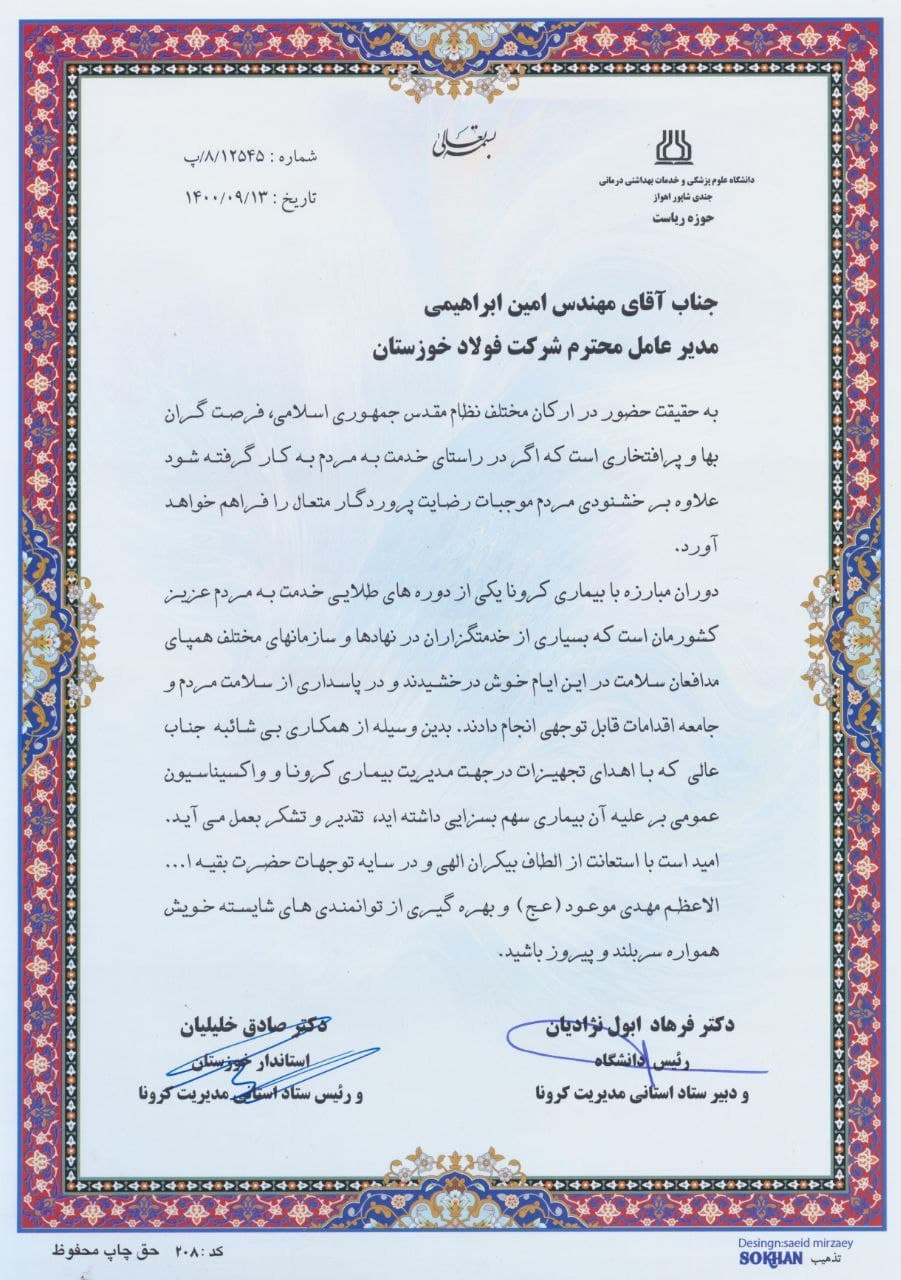 بسمه تعالی
دانشگاه علوم پزشکی و خدمات بهداشتی درمانی
جندی شاپور اهواز
حوزه ریاست
شماره : ۸/۱۲۵۴۵/پ
تاریخ : ۱۴۰۰/۰۹/۱۳
جناب آقای مهندس امین ابراهیمی
مدیر عامل محترم شرکت فولاد خوزستان
به حقیقت حضور در ارکان مختلف نظام مقدس جمهوری اسلامی، فرصت گران
بها و پرافتخاری است که اگر در راستای خدمت به مردم به کار گرفته شود
علاوه بر خشنودی مردم موجبات رضایت پروردگار متعال را فراهم خواهد
آورد.
دوران مبارزه با بیماری کرونا یکی از دوره های طلایی خدمت به مردم عزیز
کشورمان است که بسیاری از خدمتگزاران در نهادها و سازمانهای مختلف همپای
مدافعان سلامت در این ایام خوش درخشیدند و در پاسداری از سلامت مردم و
جامعه اقدامات قابل توجهی انجام دادند. بدین وسیله از همکاری بی شائبه جناب
عالی که با اهدای تجهیزات درجهت مدیریت بیماری کرونا و واکسیناسیون
عمومی بر علیه آن بیماری سهم بسزایی داشته اید، تقدیر و تشکر بعمل می آید.
امید است با استعانت از الطاف بیکران الهی و در سایه توجهات حضرت بقیه ا...
الاعظم مهدی موعود (عج) و بهره گیری از توانمندی های شایسته خویش
همواره سربلند و پیروز باشید.
دکتر فرهاد ابول نژادیان
رئیس دانشگاه
و دبیر ستاد استانی مدیریت کرونا
دکتر صادق خلیلیان
استاندار خوزستان
و رئیس ستاد استانی مدیریت کرونا
Desingn:saeid mirzaey
تذهیب SOKHAN
کد : ۲۰۸ حق چاپ محفوظ